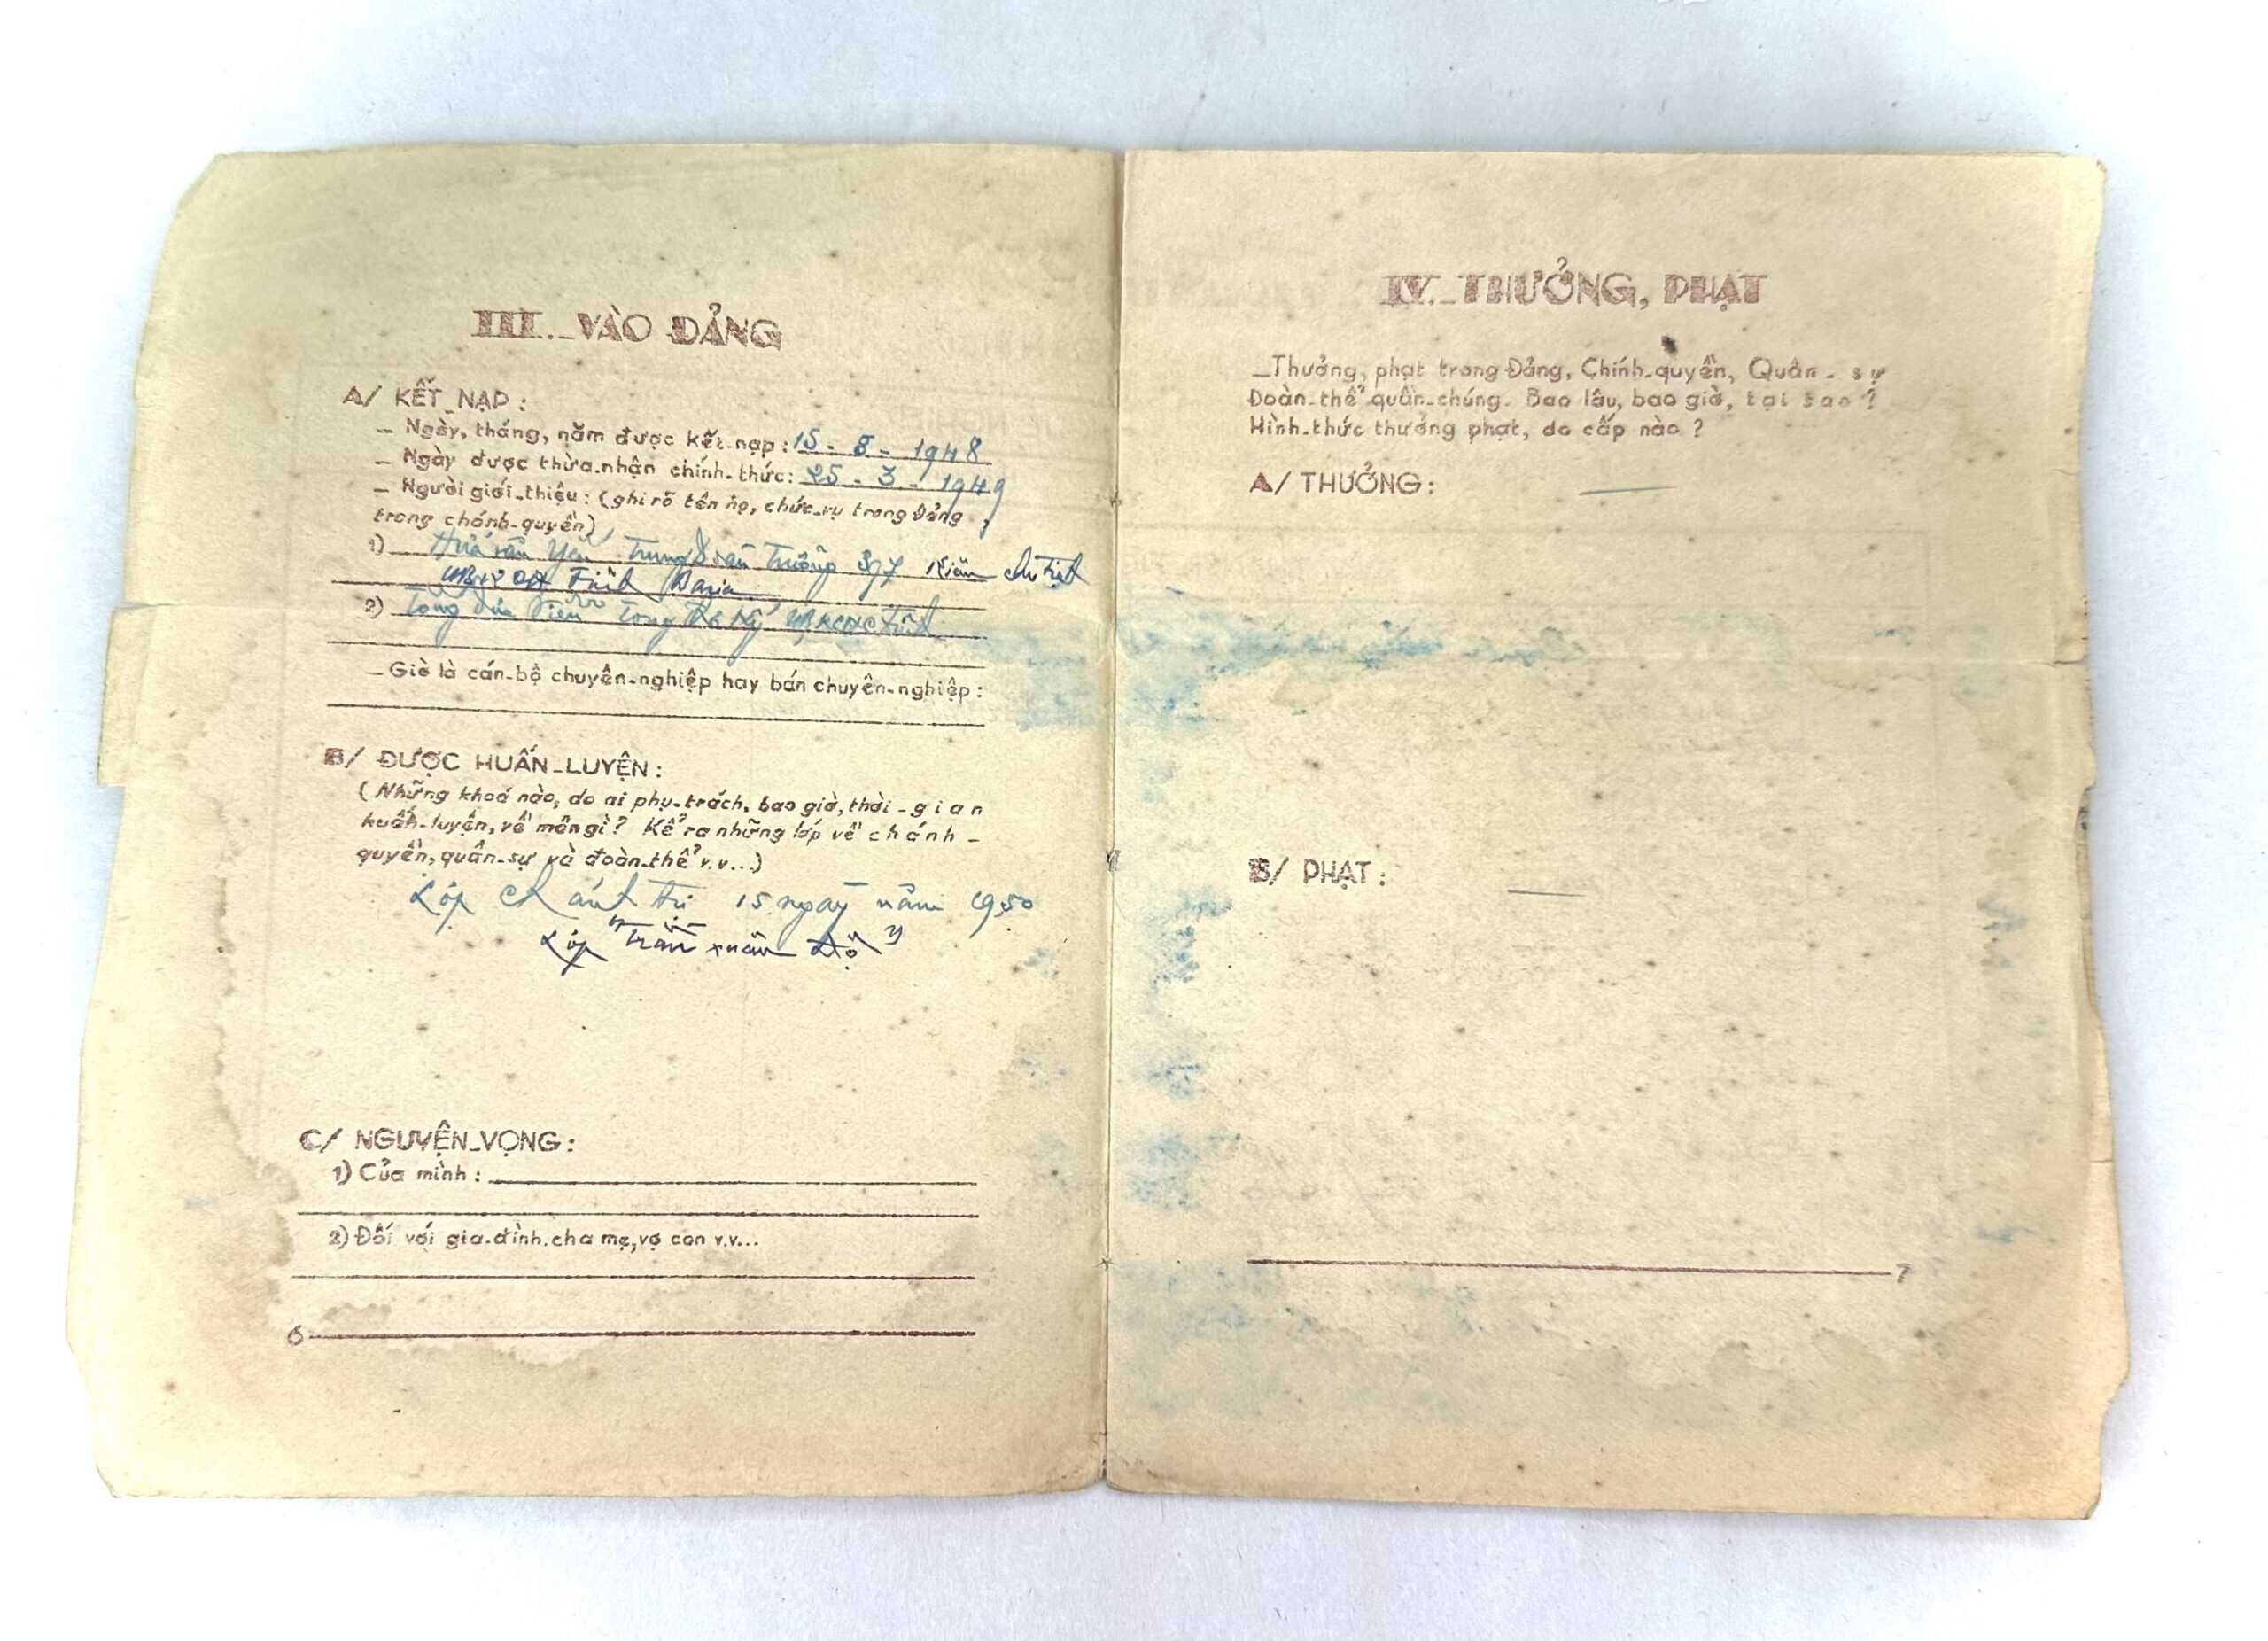 III._ VÀO ĐẢNG
A/ KẾT_NẠP :
_ Ngày, tháng, năm được kết-nạp : 15 - 8 - 1948
_ Ngày được thừa-nhận chính-thức : 25 - 3 - 1949
_ Người giới-thiệu : (ghi rõ tên họ, chức-vụ trong Đảng,
trong chánh-quyền)
1) Hứa văn Yến Trung Đoàn Trưởng 397 Kiêm chủ tịch
UBKCHC Tỉnh Baria
2) Tổng UBKCHC Tỉnh
_ Giờ là cán-bộ chuyên-nghiệp hay bán chuyên-nghiệp :
B/ ĐƯỢC HUẤN_LUYỆN :
( Những khoá nào, do ai phụ-trách, bao giờ, thời-gian
huấn-luyện, về môn gì ? Kể ra những lớp về chánh-
quyền, quân-sự và đoàn-thể v.v...)
Lớp chánh trị 15 ngày năm 1950
Lớp "Trần xuân Độ"
C/ NGUYỆN_VỌNG :
1) Của mình :
2) Đối với gia-đình, cha mẹ, vợ con v.v...
6
IV._ THƯỞNG, PHẠT
_ Thưởng, phạt trong Đảng, Chính-quyền, Quân-sự
Đoàn-thể quần-chúng. Bao lâu, bao giờ, tại sao ?
Hình-thức thưởng phạt, do cấp nào ?
A/ THƯỞNG :
B/ PHẠT :
7